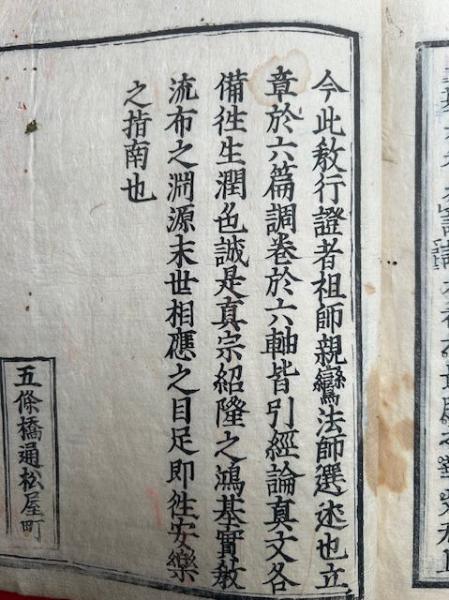 今此教行證者祖師親鸞法師選述也立
章於六篇調卷於六軸皆引經論真文各
備徃生潤色誠是真宗紹隆之鴻基實教
流布之淵源末世相應之目足即徃安樂
之指南也
五條橋通松屋町